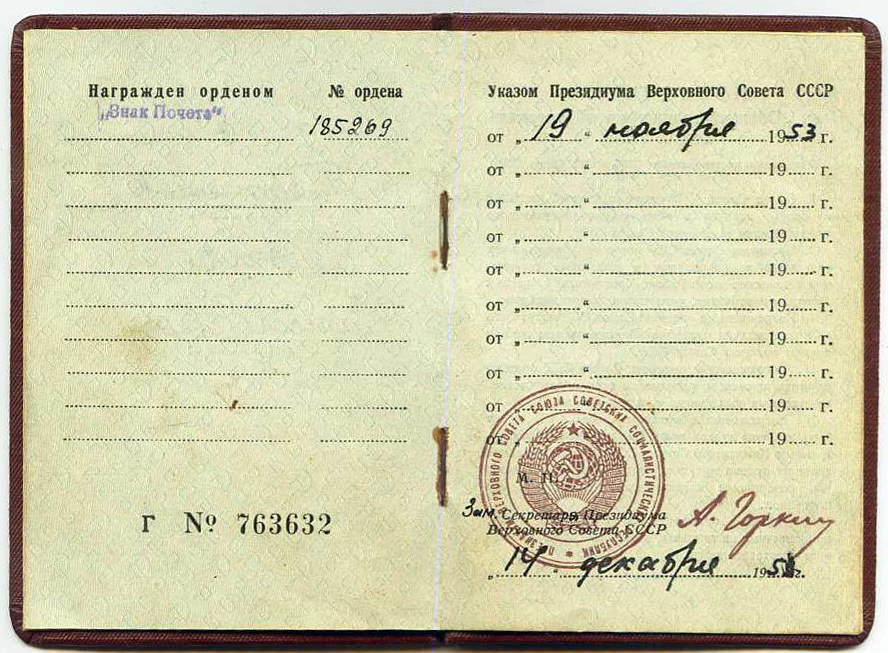 Награжден орденом № ордена
„Знак Почета“ 185269
Г № 763632
Указом Президиума Верховного Совета СССР
от „19“ ноября 1953 г.
от „ “ 19 г.
от „ “ 19 г.
от „ “ 19 г.
от „ “ 19 г.
от „ “ 19 г.
от „ “ 19 г.
от „ “ 19 г.
от „ “ 19 г.
от „ “ 19 г.
ПРЕЗИДИУМ ВЕРХОВНОГО СОВЕТА СОЮЗА СОВЕТСКИХ СОЦИАЛИСТИЧЕСКИХ РЕСПУБЛИК
М. П.
Зам. Секретарь Президиума
Верховного Совета СССР
А. Горкин
„14“ декабря г.